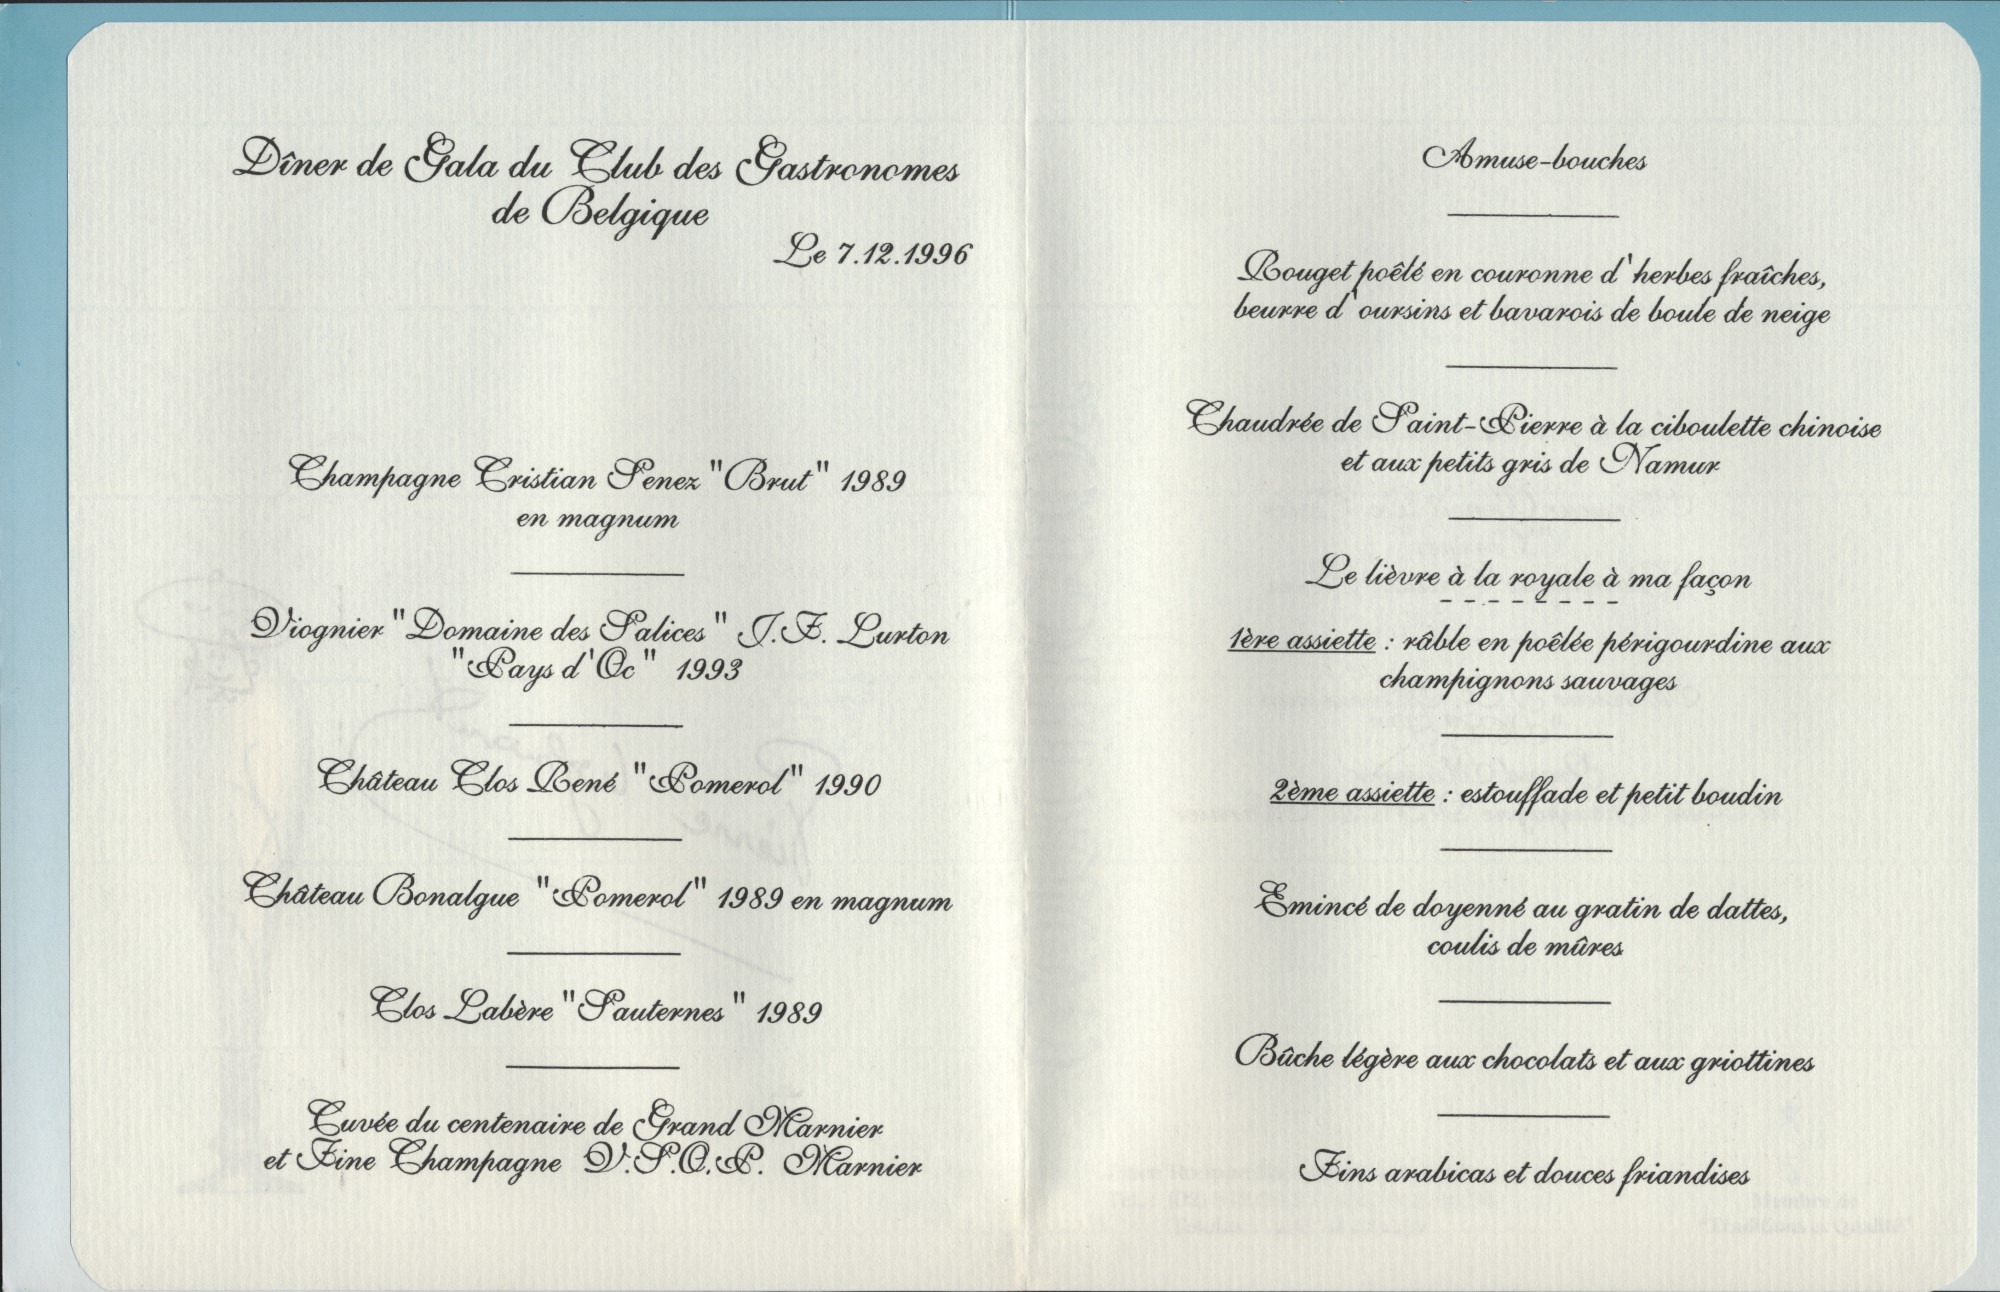 Dîner de Gala du Club des Gastronomes
de Belgique
Le 7.12.1996
Champagne Cristian Senez "Brut" 1989
en magnum
Viognier "Domaine des Salices" J.F. Lurton
"Pays d'Oc" 1993
Château Clos René "Pomerol" 1990
Château Bonalgue "Pomerol" 1989 en magnum
Clos Labère "Sauternes" 1989
Cuvée du centenaire de Grand Marnier
et Fine Champagne V.S.O.P. Marnier
Amuse-bouches
Rouget poêlé en couronne d'herbes fraîches,
beurre d'oursins et bavarois de boule de neige
Chaudrée de Saint-Pierre à la ciboulette chinoise
et aux petits gris de Namur
Le lièvre à la royale à ma façon
1ère assiette : râble en poêlée périgourdine aux
champignons sauvages
2ème assiette : estouffade et petit boudin
Emincé de doyenné au gratin de dattes,
coulis de mûres
Bûche légère aux chocolats et aux griottines
Fins arabicas et douces friandises